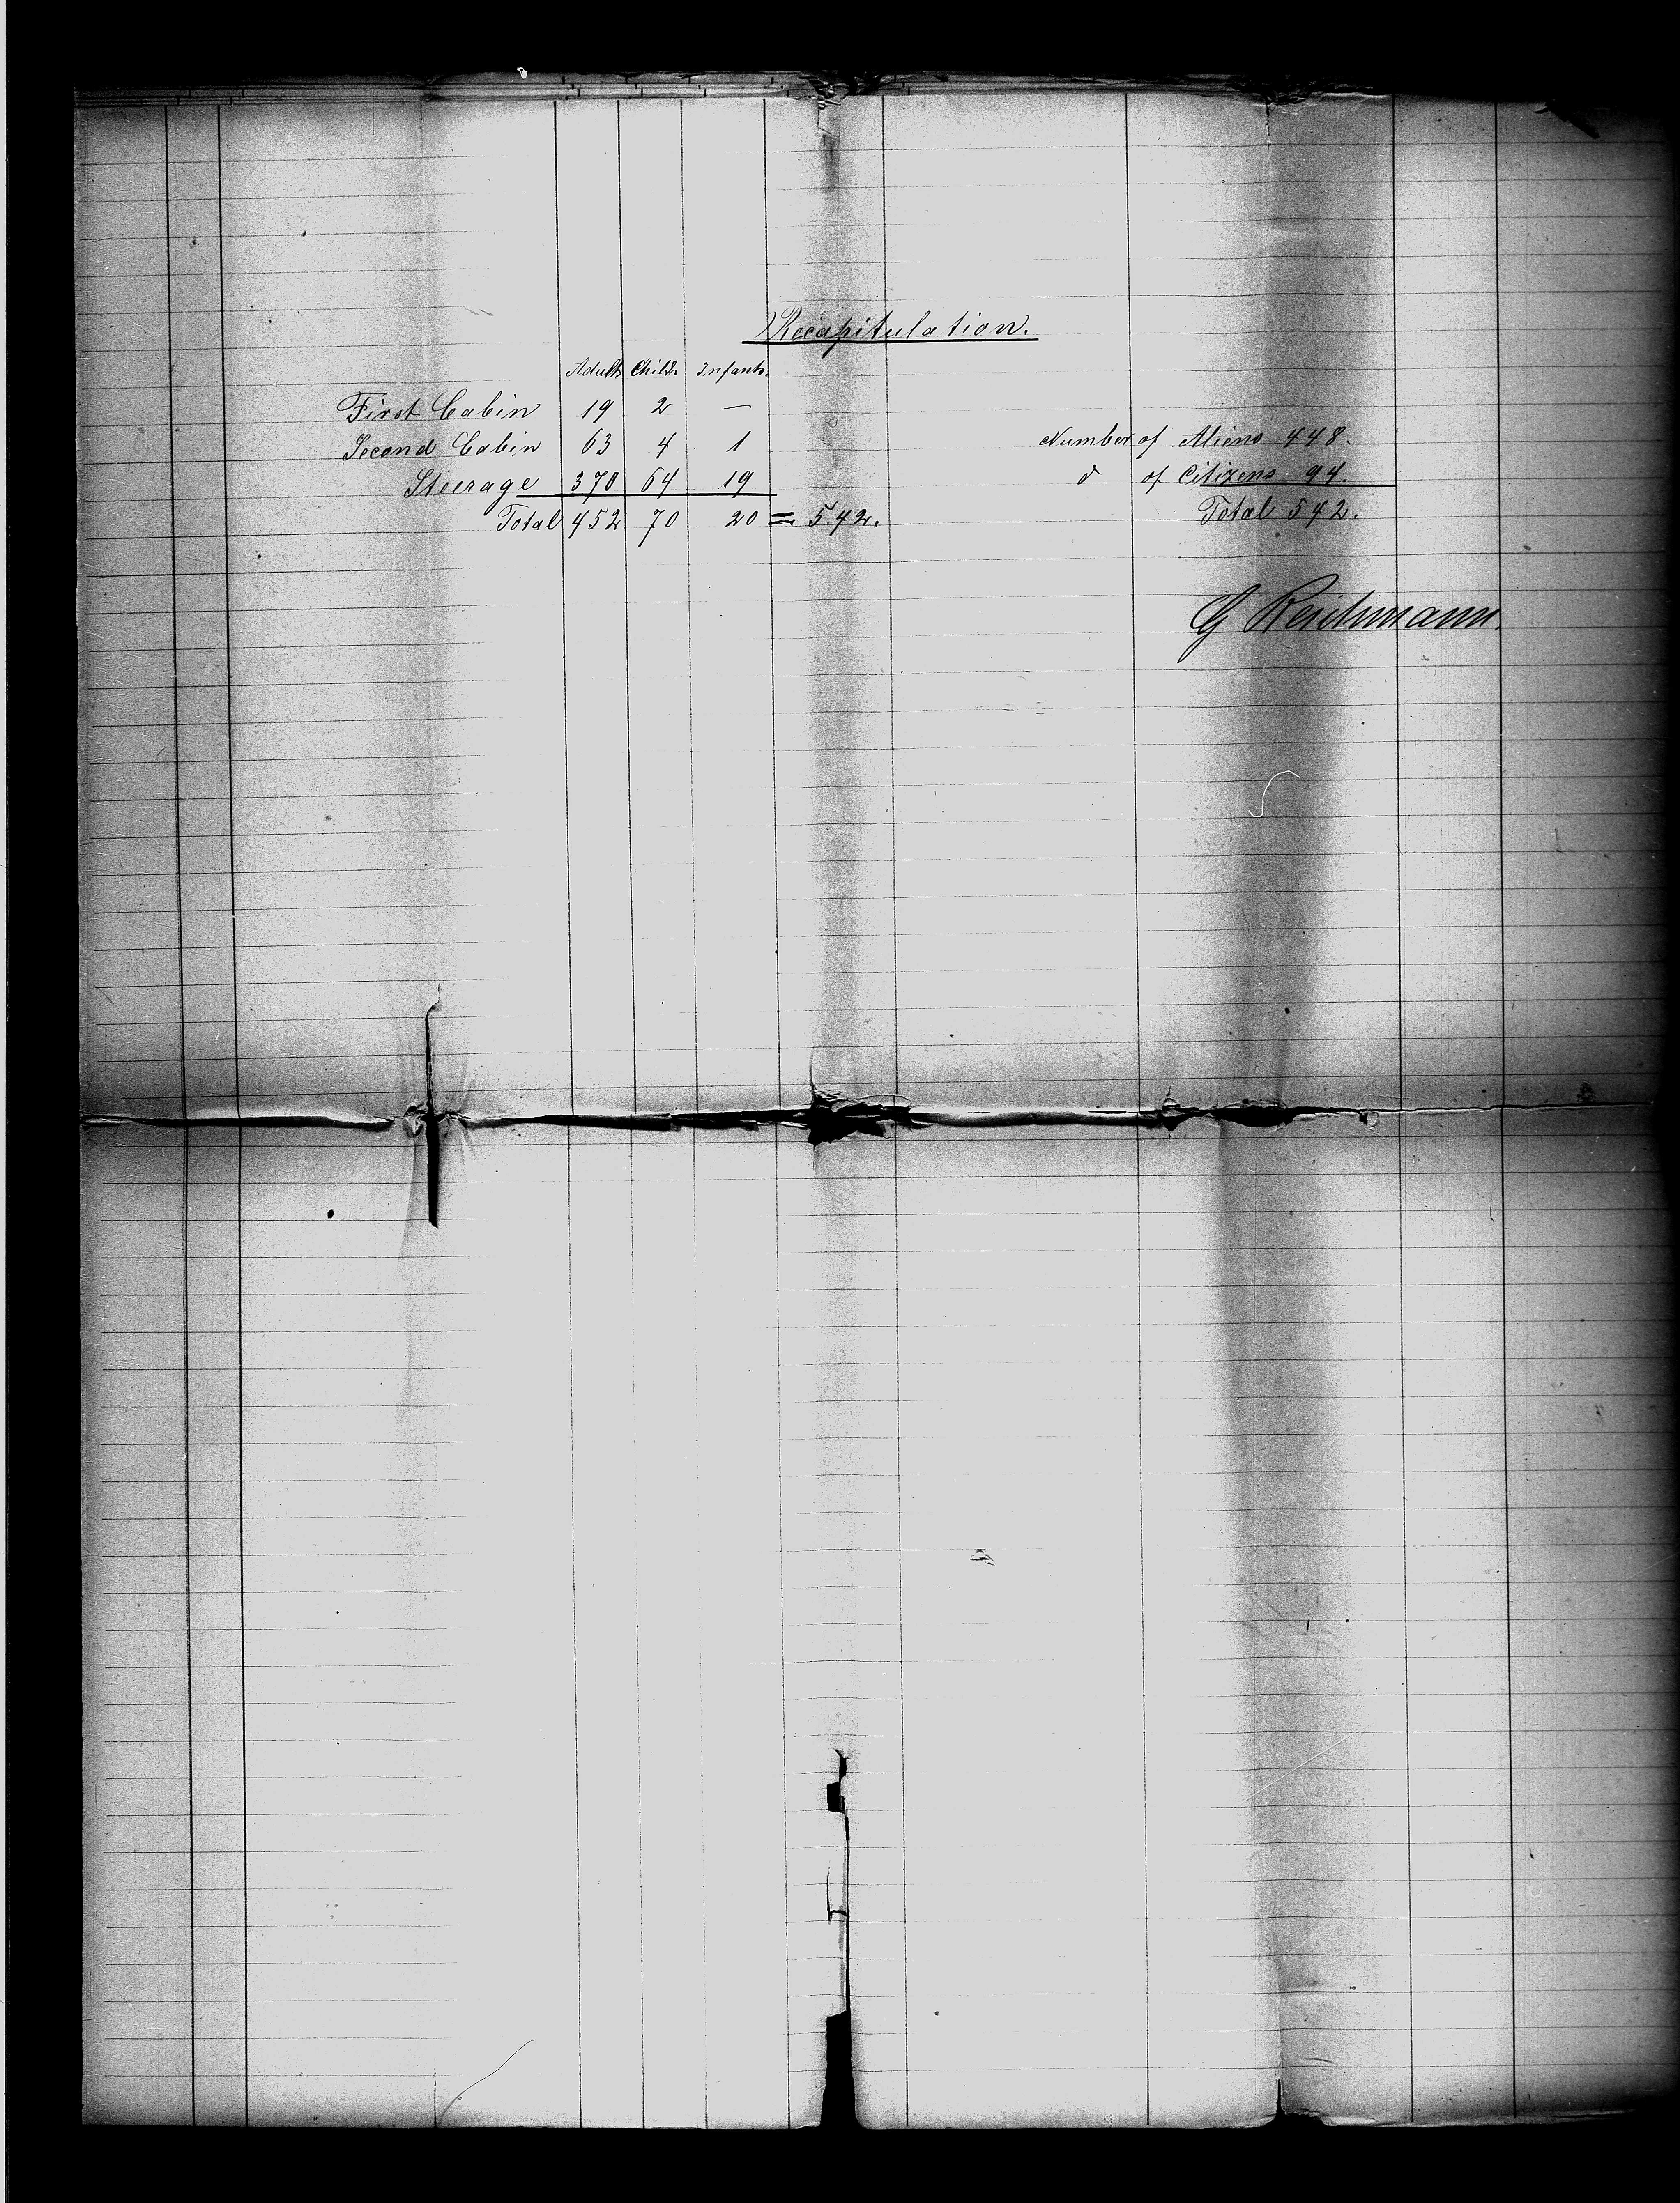 Recapitulation.
Adults Childr Infants.
First Cabin 19 2 —
Second Cabin 63 4 1
Steerage 370 64 19
Total 452 70 20 = 542.
Number of Aliens 448.
d of Citizens 94.
Total 542.
G Reichmann.